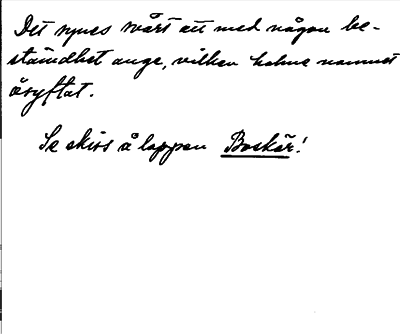 Det synes svårt att med någon be-
stämdhet ange, vilken holme namnet
åsyftat.
Se skiss å lappen Boskär!